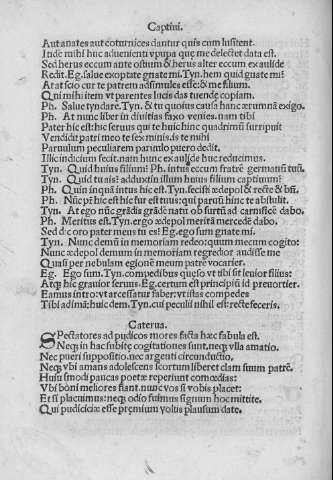 Captiui.
Aut anates aut coturnices dantur quis cum lusitent.
Inde mihi huc aduenienti vpupa que me delectet data est.
Sed herus eccum ante ostium & herus alter eccum ex aulide
Redit. Eg. salue exoptate gnate mi. Tyn. hem quid gnate mi?
At at scio cur te patrem adsimules esse: & me filium.
Qui mihi item vt parentes lucis das tuende copiam.
Ph. Salue tyndare. Tyn. & tu quoius causa hanc ærumnã exigo.
Ph. At nunc liber in diuitias faxo venies. nam tibi
Pater hic est: hic seruus qui te huic hinc quadrimũ surripuit
Vendidit patri meo te sex minis. is te mihi
Paruulum peculiarem paruulo puero dedit.
Illic indicium fecit. nam hunc ex aulide huc reducimus.
Tyn. Quid huius filium? Ph. intus eccum fratrẽ germanũ tuũ.
Tyn. Quid tu ais? adduxtin illum huius filium captiuum?
Ph. Quin inquã intus hic est. Tyn. fecisti ædepol & recte & bñ.
Ph. Nũc pr̃ hic est hic fur est tuus: qui paruũ hinc te abstulit.
Tyn. At ego nũc grãdis grãdẽ natu ob furtũ ad carnificẽ dabo.
Ph. Meritus est. Tyn. ergo ædepol meritã mercedẽ dabo.
Sed dic oro pater meus tu es? Eg. ego sum gnate mi.
Tyn. Nunc demũ in memoriam redeo: quum mecum cogito:
Nunc ædepol demum in memoriam regredior audisse me
Quasi per nebulam egionẽ meum patrẽ vocarier.
Eg. Ego sum. Tyn. compedibus queso vt tibi sit leuior filius:
Atq; hic grauior seruus. Eg. certum est principiũ id preuortier.
Eamus intro: vt arcessatur faber: vt istas compedes
Tibi adimã: huic dem. Tyn. cui peculii nihil est: recte feceris.
Caterua.
SPectatores ad pudicos mores facta hæc fabula est.
Neq; in hac subitẽ cogitationes sunt. neq; vlla amatio.
Nec pueri suppositio. nec argenti circunductio.
Neq; vbi amans adolescens scortum liberet clam suum patrẽ.
Huiusmodi paucas poetæ reperiunt comœdias:
Vbi boni meliores fiant. nunc vos si vobis placet:
Et si placuimus: neq; odio fuimus signum hoc mittite.
Qui pudiciciæ esse premium voltis plausum date.